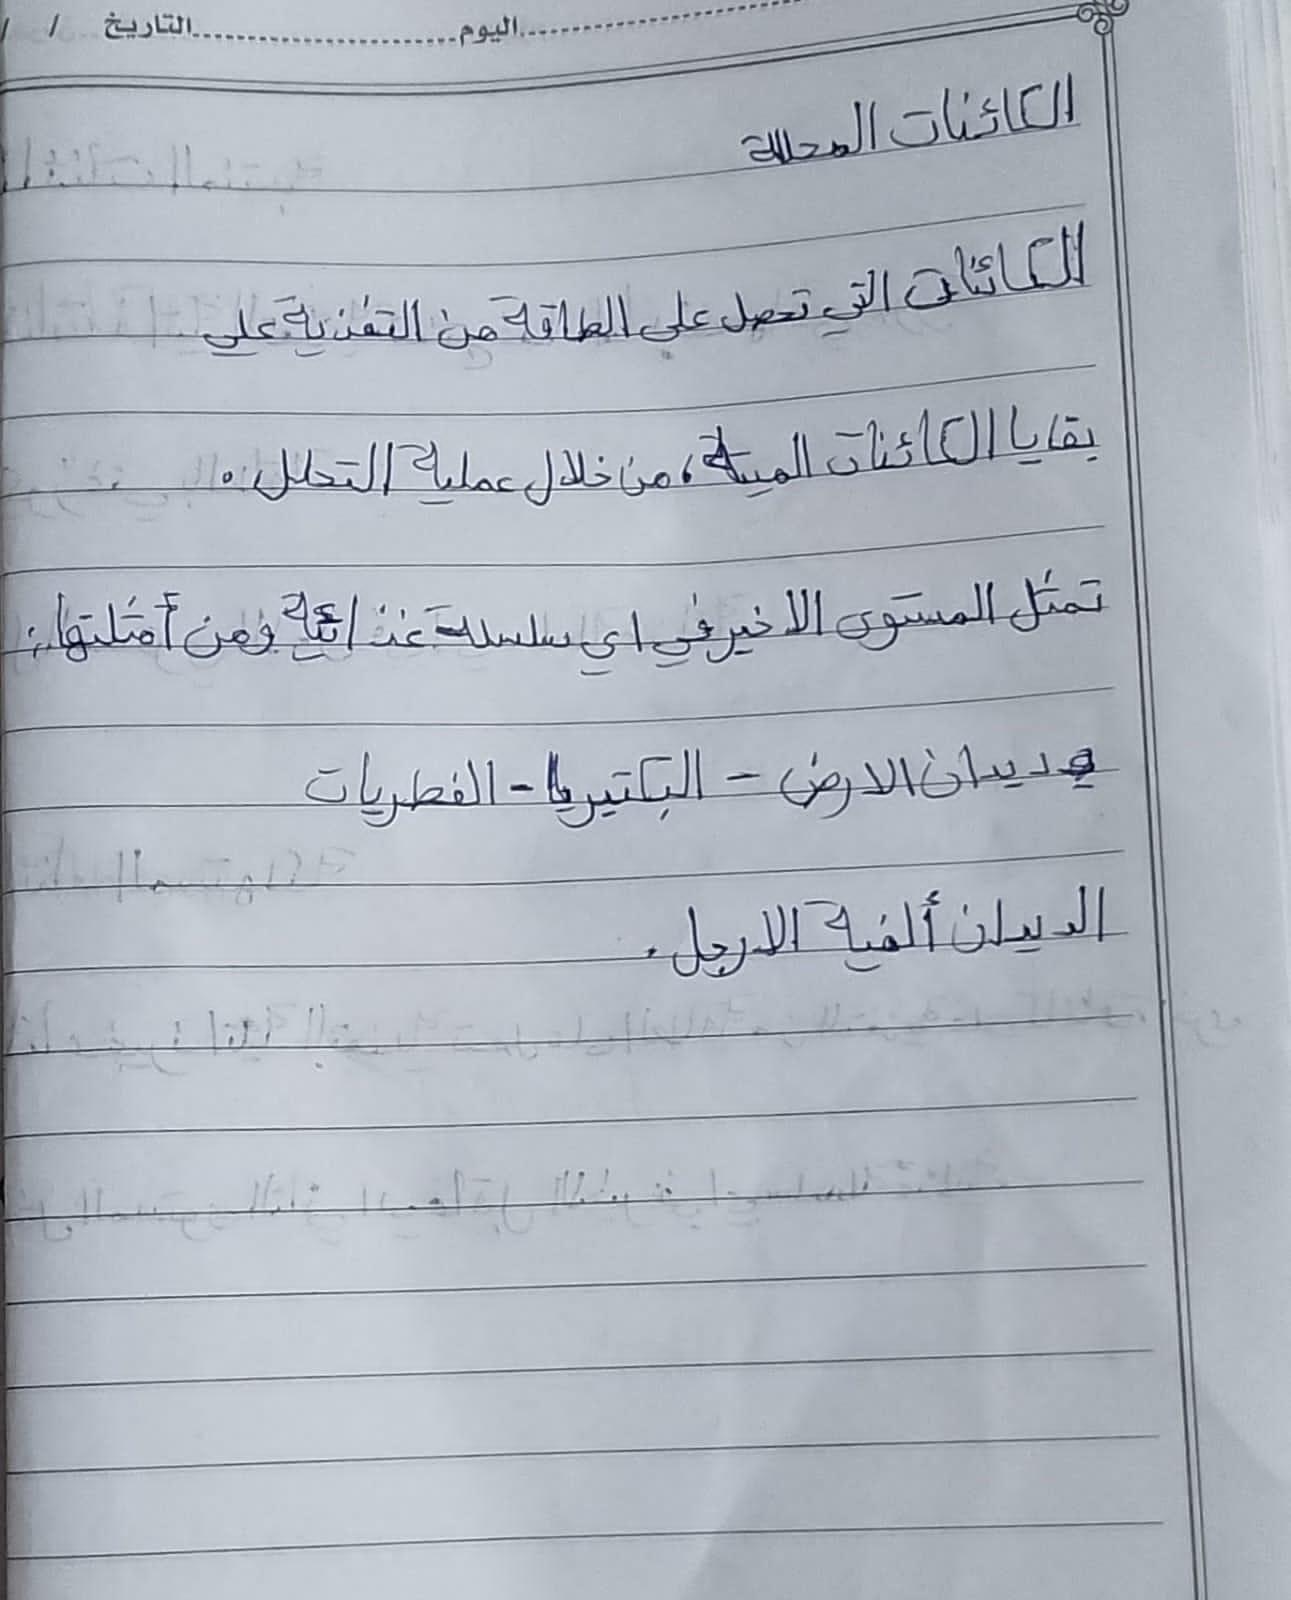 اليوم التاريخ / /
الكائنات المحللة
الكائنات التي تحصل على الطاقة من التغذية علي
بقايا الكائنات الميتة، من خلال عملية التحلل.
تمثل المستوى الاخير في اي سلسلة غذائية ومن أمثلتها:
ديدان الارض - البكتيريا - الفطريات
الديدان ألفية الارجل.